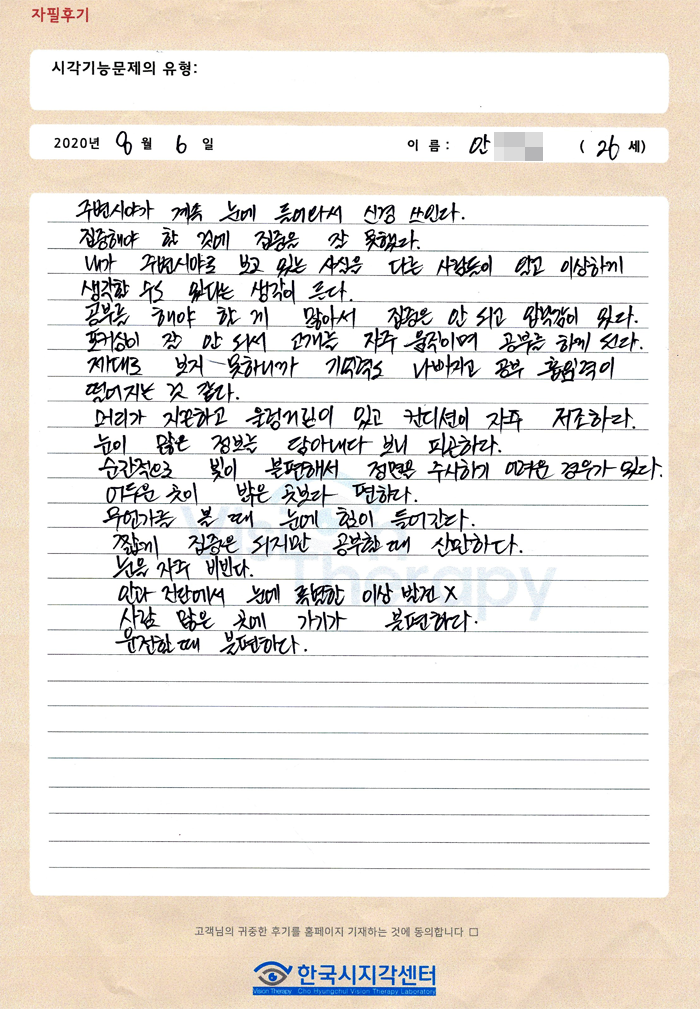 자필후기
시각기능문제의 유형:
2020년 8월 6일 이 름 : 안 ( 26 세)
주변시야가 계속 눈에 들어와서 신경 쓰인다.
집중해야 할 것에 집중을 잘 못했다.
내가 주변시야로 보고 있는 사실을 다른 사람들이 알고 이상하게
생각할 수도 있다는 생각이 든다.
공부를 해야 할 게 많아서 집중은 안 되고 압박감이 있다.
포커싱이 잘 안 되서 고개를 자주 움직이며 공부를 하게 된다.
제대로 보지 못하니까 기억력도 나빠지고 공부 흡입력이
떨어지는 것 같다.
머리가 지끈하고 울렁거림이 있고 컨디션이 자주 저조하다.
눈이 많은 정보를 담아내다 보니 피곤하다.
순간적으로 빛이 불편해서 정면을 주시하기 어려운 경우가 있다.
어두운 곳이 밝은 곳보다 편하다.
무언가를 볼 때 눈에 힘이 들어간다.
짧게 집중은 되지만 공부할 때 산만하다.
눈을 자주 비빈다.
안과 진단에서 눈에 특별한 이상 발견 X
사람 많은 곳에 가기가 불편하다.
운전할 때 불편하다.
Vision
Therapy
고객님의 귀중한 후기를 홈페이지 기재하는 것에 동의합니다 □
한국시지각센터
Vision Therapy Cho Hyungchul Vision Therapy Laboratory